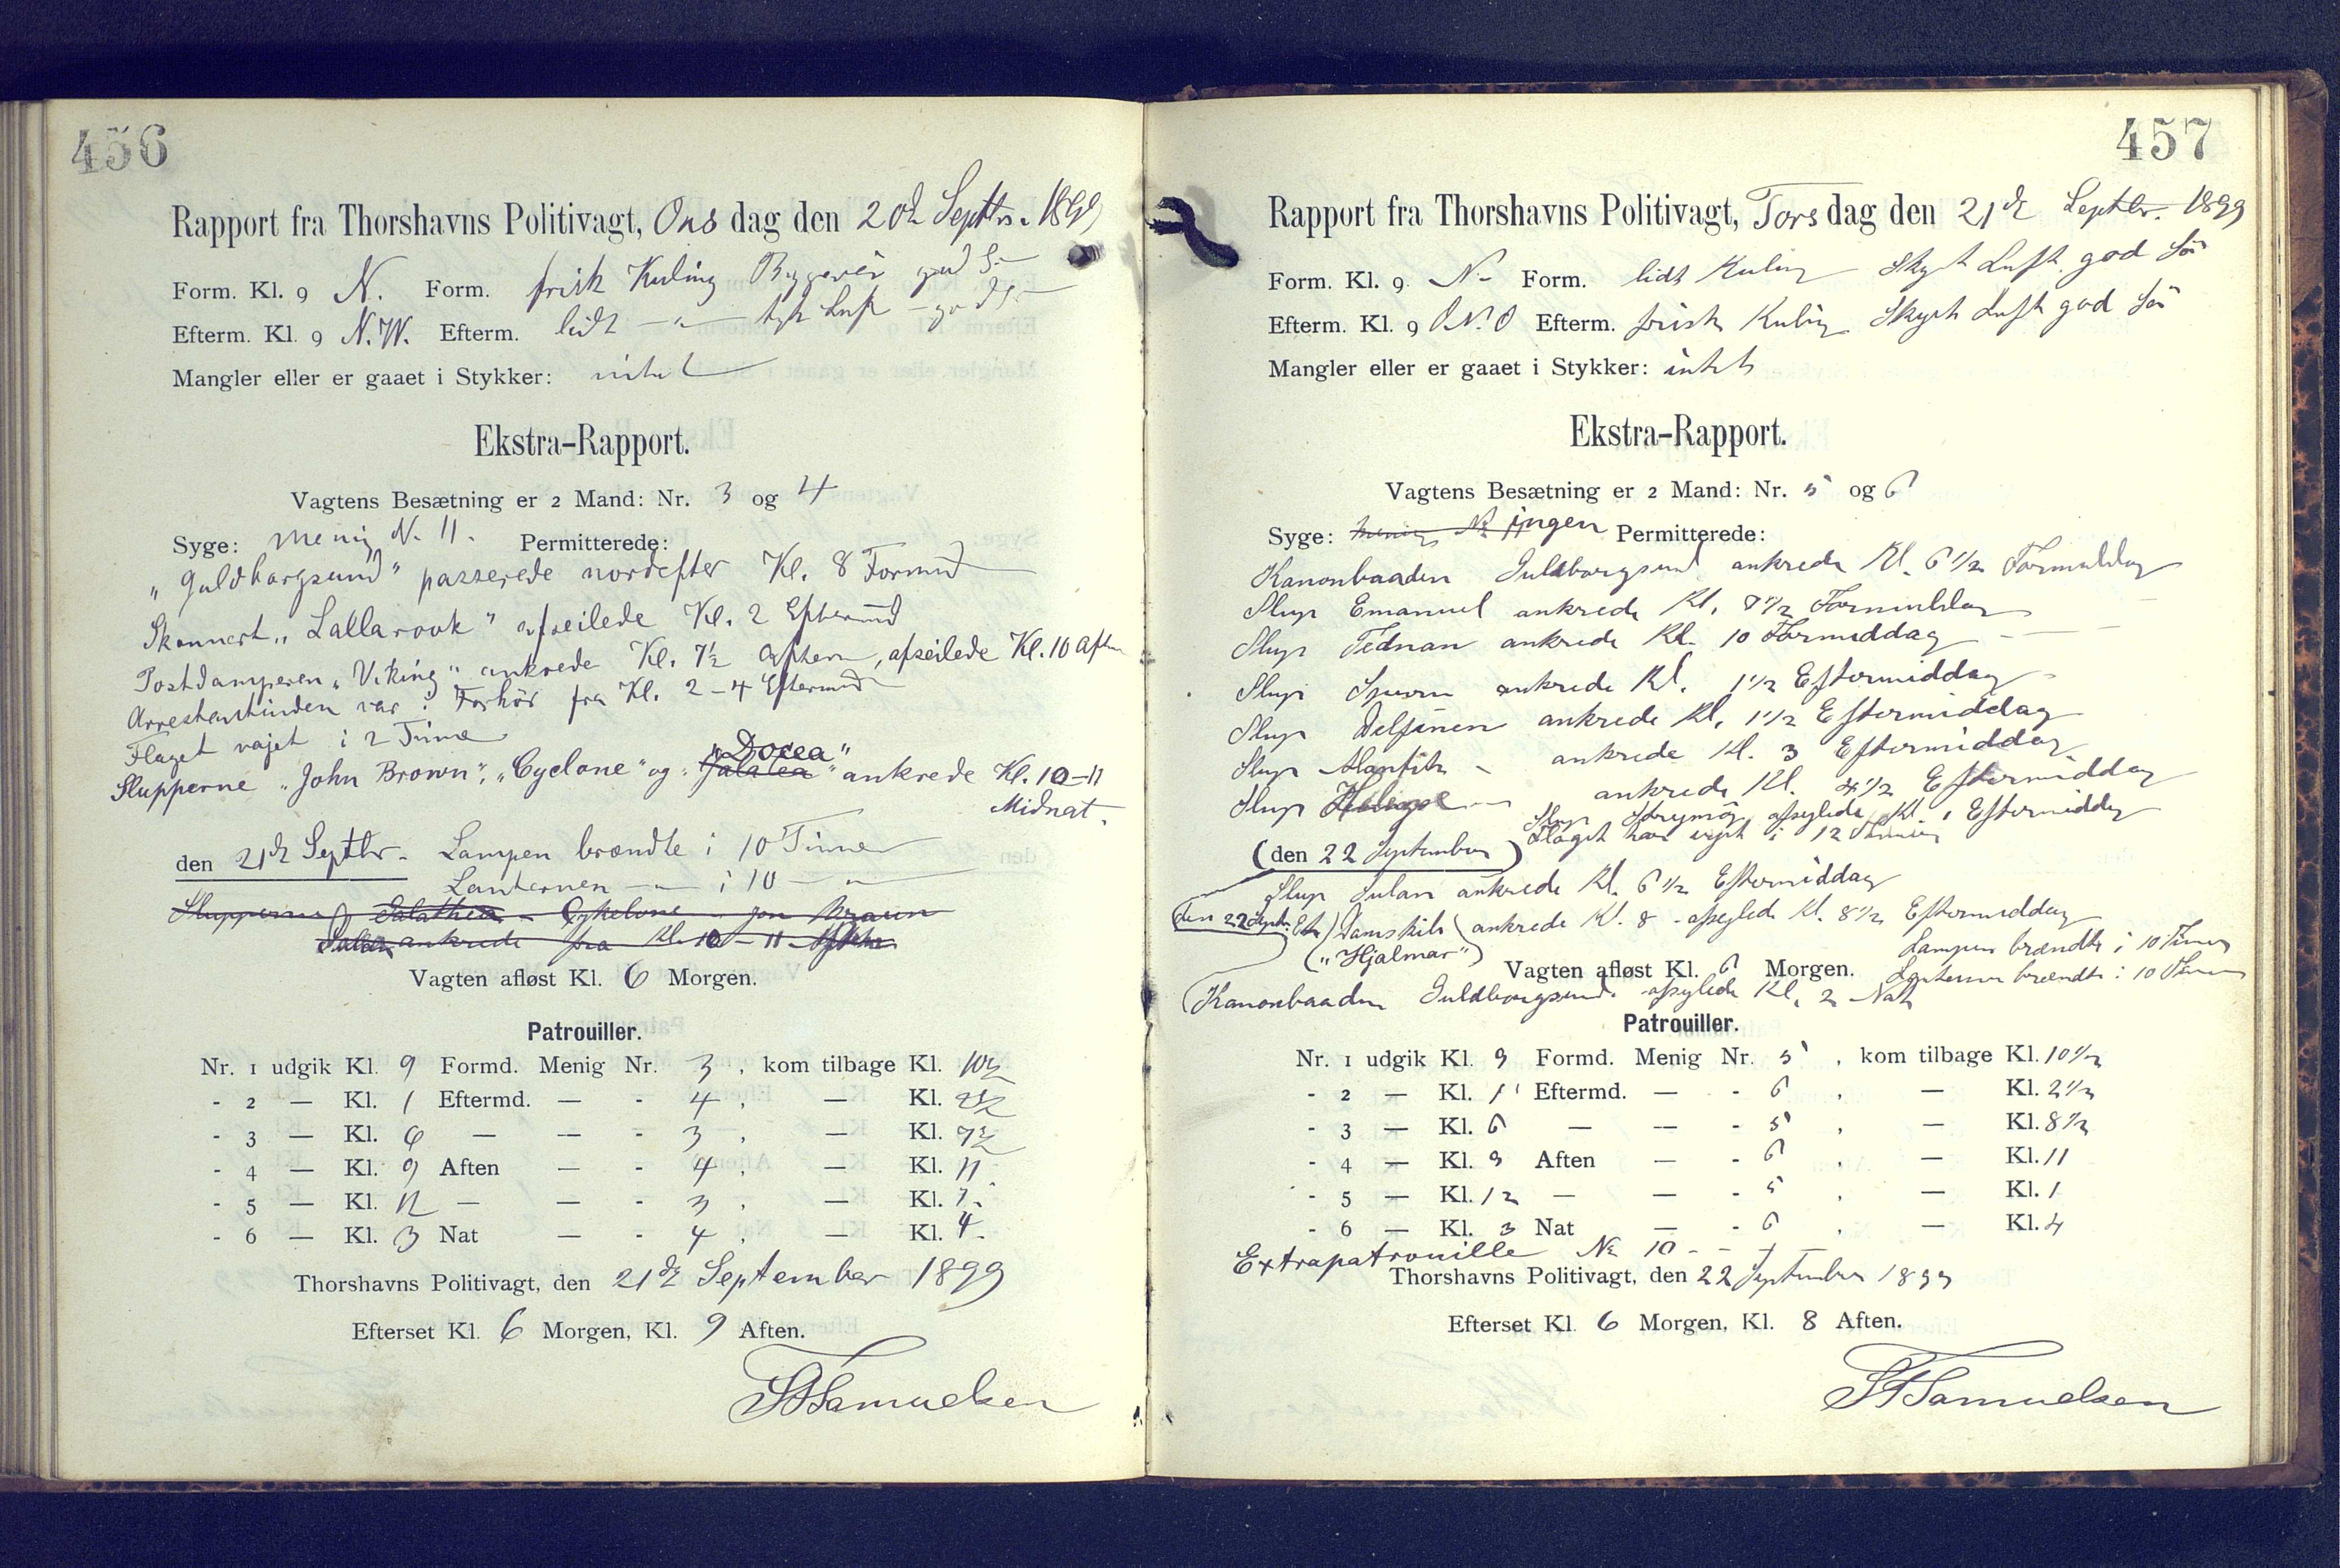 456
Rapport fra Thorshavns Politivagt, Ons dag den 20d Septbr. 1899
Form. Kl. 9 N. Form. frisk Kuling Byggeveir god S.-
Efterm. Kl. 9 N.W. Efterm. lidt -"- tyk Luft - god S.-
Mangler eller er gaaet i Stykker: intet
Ekstra-Rapport.
Vagtens Besætning er 2 Mand: Nr. 3 og 4
Syge: Menig N. 11. Permitterede:
"Guldborgsund" passerede nordefter Kl. 8 Formd
Skonnert "Lallarook" afseilede Kl. 2 Eftermd
Postdamperen "Viking" ankrede Kl. 7½ Aften, afseilede Kl. 10 Aften
Arrestantinden var i Forhör fra Kl. 2-4 Eftermd
Flaget vajet i 2 Time
"Dorea"
Slupperne "John Brown", "Cyclone" og "Galatea" ankrede Kl. 10-11
Midnat.
den 21d Septbr. Lampen brændte i 10 Timer
Lanternen -"- i 10 -"-
Slupperne Galathea - Cykelone - Jon Braun
ankrede fra Kl. 10-11 Aften
Vagten afløst Kl. 6 Morgen.
Patrouiller.
Nr. 1 udgik Kl. 9 Formd. Menig Nr. 3, kom tilbage Kl. 10½
- 2 — Kl. 1 Eftermd. — - 4, — Kl. 2½
- 3 — Kl. 6 — — - 3, — Kl. 7½
- 4 — Kl. 9 Aften — - 4, — Kl. 11
- 5 — Kl. 12 — — - 3, — Kl. 1.
- 6 — Kl. 3 Nat — - 4, — Kl. 4.
Thorshavns Politivagt, den 21de September 1899
Efterset Kl. 6 Morgen, Kl. 9 Aften.
Samuelsen
457
Rapport fra Thorshavns Politivagt, Tors dag den 21de Septbr. 1899
Form. Kl. 9 N- Form. lidt Kuling Skyet Luft god Sö
Efterm. Kl. 9 ONO Efterm. frisk Kuling Skyet Luft god Sö
Mangler eller er gaaet i Stykker: intet
Ekstra-Rapport.
Vagtens Besætning er 2 Mand: Nr. 5 og 6
Syge: Menig Nr 11 ingen Permitterede:
Kanonbaaden Guldborgsund ankrede Kl. 6 1/2 Formiddag
Slup Emanuel ankrede Kl. 7 1/2 Formiddag
Slup Tednan ankrede Kl. 10 Formiddag
Slup Spurn ankrede Kl. 1 1/2 Eftermiddag
Slup Delfinen ankrede Kl. 1 1/2 Eftermiddag
Slup ankrede Kl. 3 Eftermiddag
Slup ankrede Kl. 4 1/2 Eftermiddag
Slup Strymöy afseglede Kl. 1 Eftermiddag
(den 22 September) Flaget har vajet i 12 Timer
Slup Sulan ankrede Kl. 6 1/2 Eftermiddag
(den 22 Septr.) Damskib ankrede Kl. 8 - afseglede Kl. 8 1/2 Eftermiddag
("Hjalmar") Lampen brændte i 10 Timer
Vagten afløst Kl. 6 Morgen. Lanternen brændte i 10 Timer
(Kanonbaaden Guldborgsund afseglede Kl. 2 Nat
Patrouiller.
Nr. 1 udgik Kl. 9 Formd. Menig Nr. 5, kom tilbage Kl. 10 1/2
- 2 — Kl. 1 Eftermd. — - 6, — Kl. 2 1/2
- 3 — Kl. 6 — — - 5, — Kl. 8 1/2
- 4 — Kl. 9 Aften — - 6, — Kl. 11
- 5 — Kl. 12 — — - 5, — Kl. 1
- 6 — Kl. 3 Nat — - 6, — Kl. 4
Extrapatrouille Nr 10 - - - -
Thorshavns Politivagt, den 22 September 1899
Efterset Kl. 6 Morgen, Kl. 8 Aften.
Samuelsen